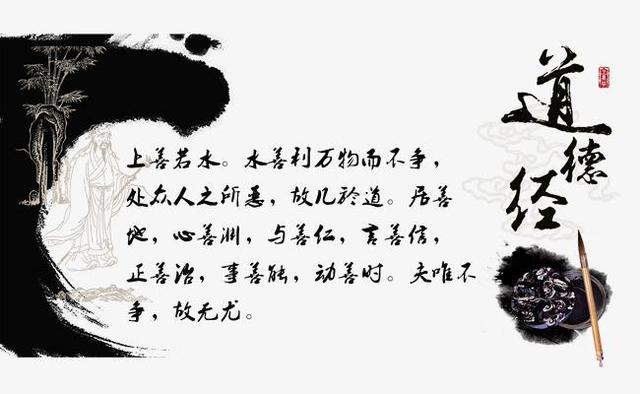 道德经
上善若水。水善利万物而不争，
处众人之所恶，故几於道。居善
地，心善渊，与善仁，言善信，
正善治，事善能，动善时。夫唯不
争，故无尤。